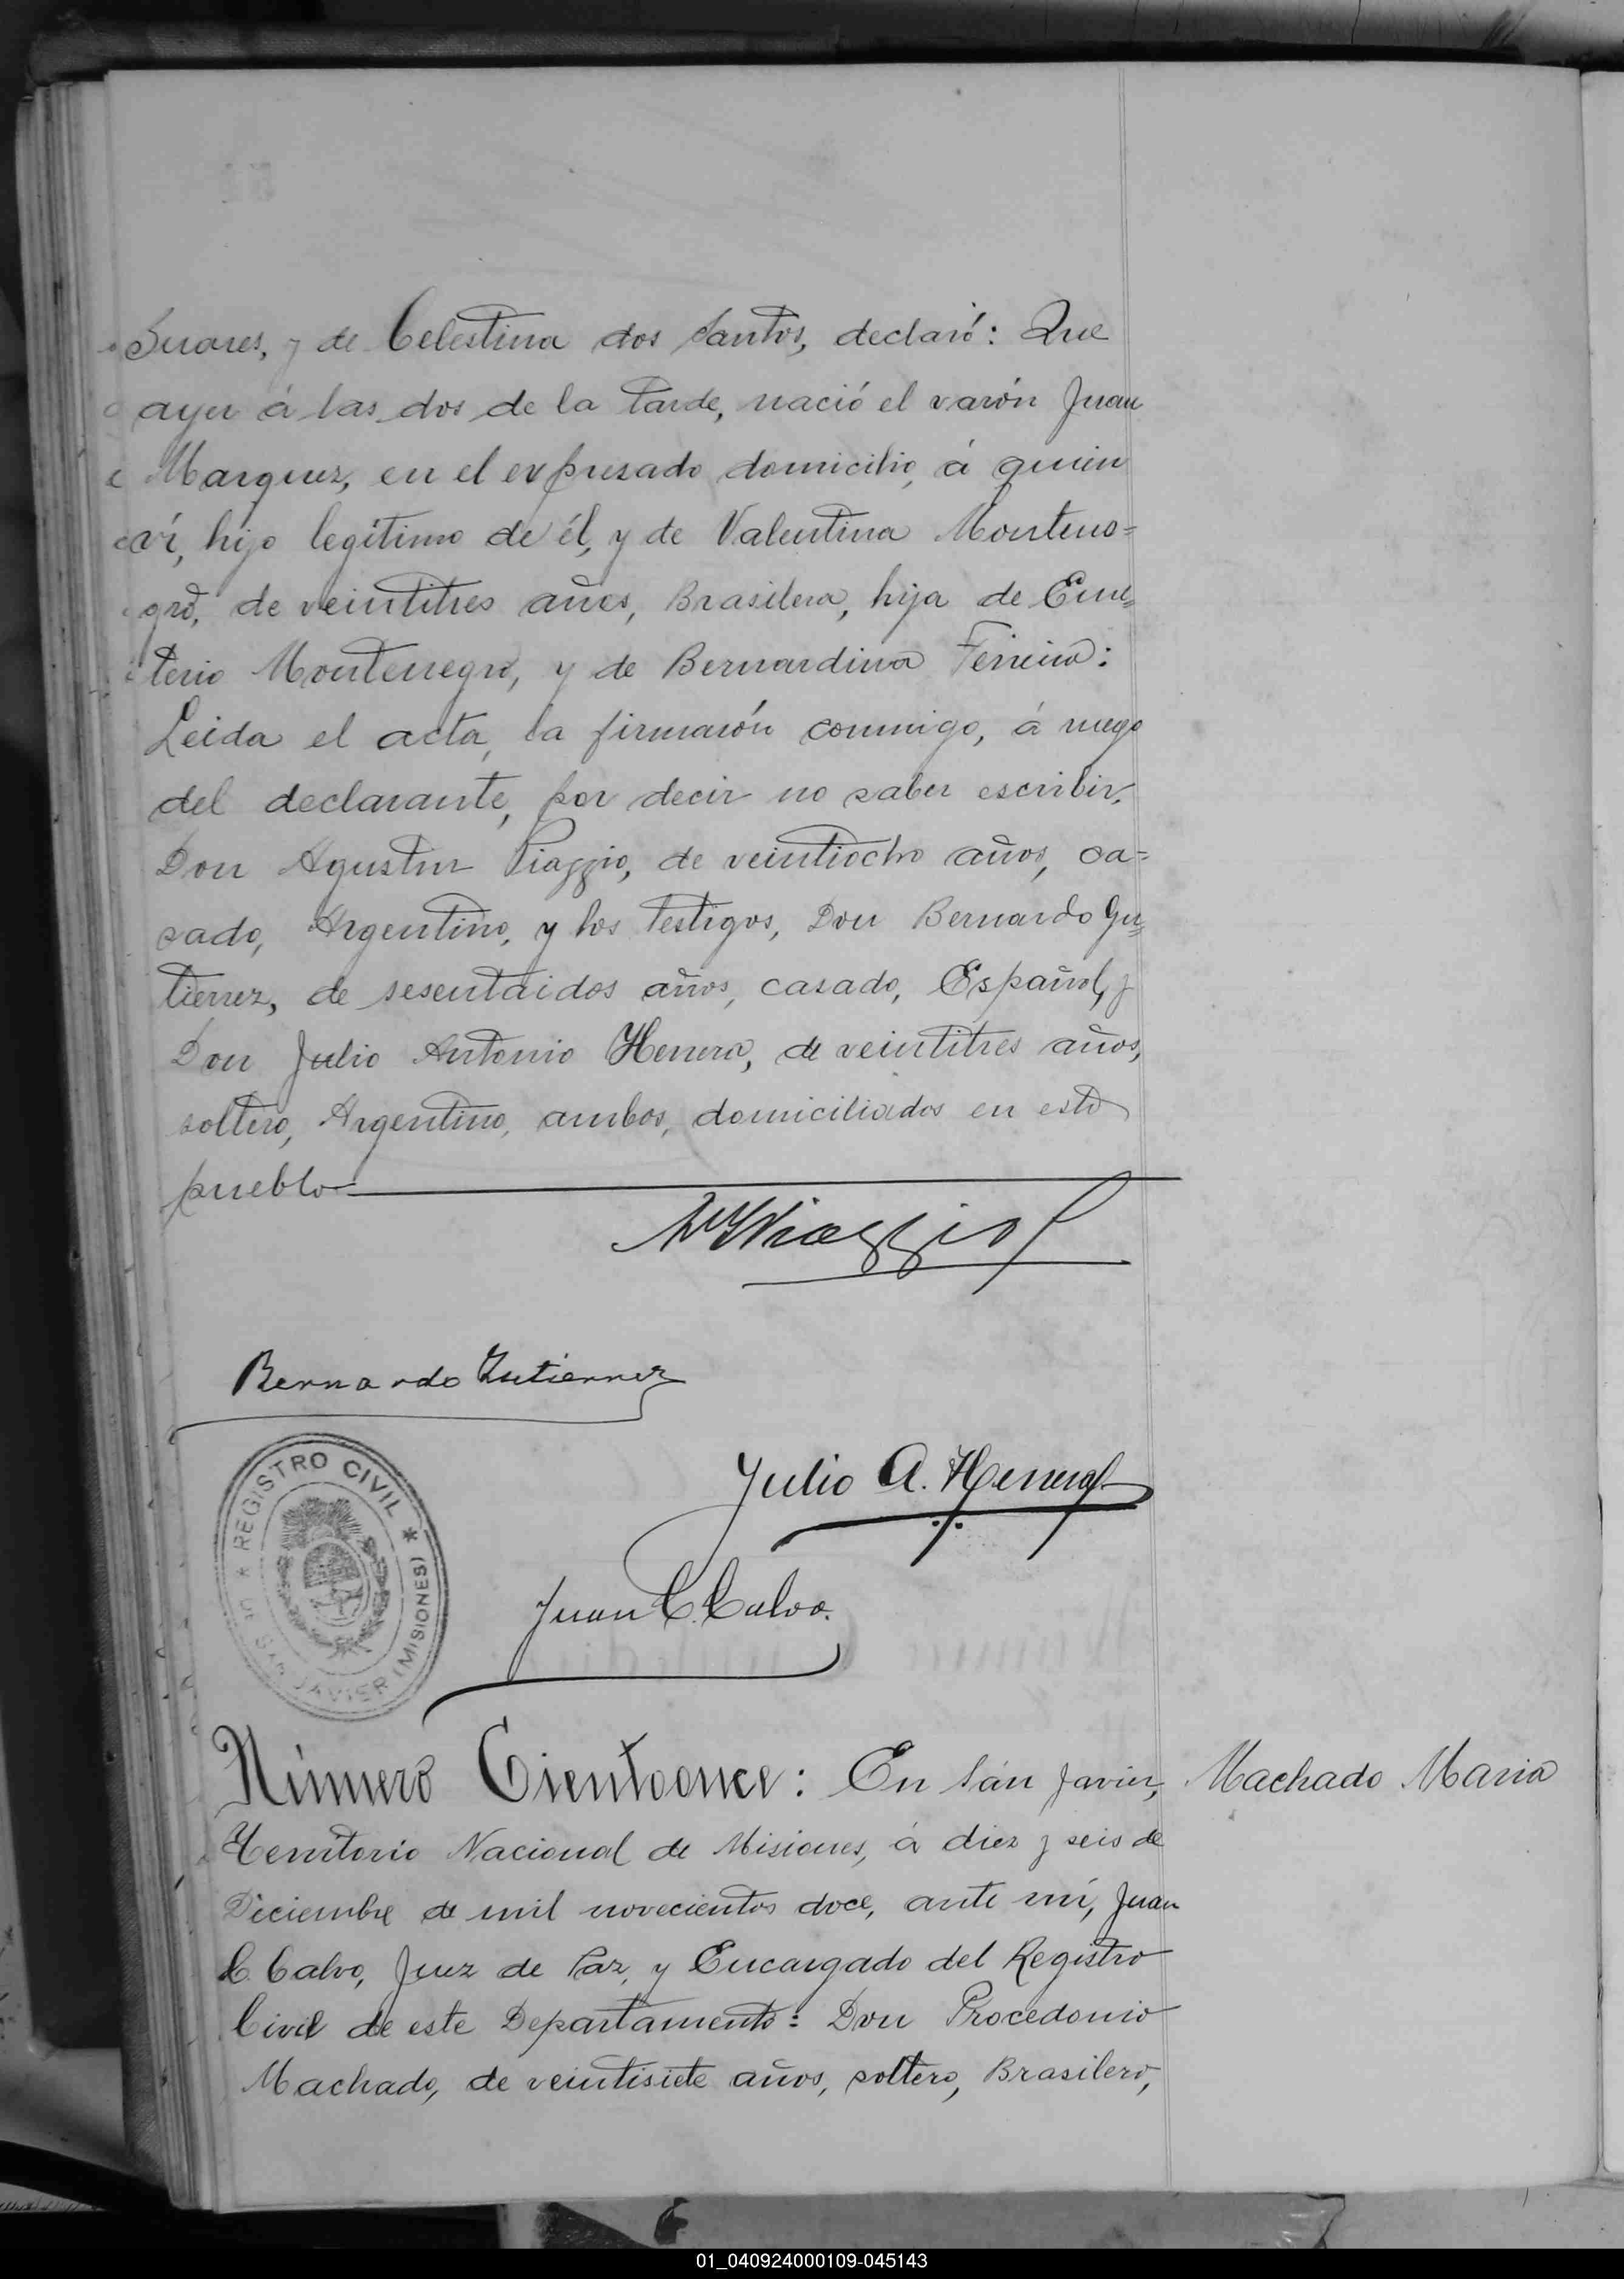 Suares, y de Celestina dos Santos, declaró: Que
ayer á las dos de la tarde, nació el varón Juan
Marquez, en el expresado domicilio, á quien
ví, hijo legítimo de él, y de Valentina Montene=
gro, de veintitres años, Brasilera, hija de Eme=
terio Montenegro, y de Bernardina Ferreira:
Leida el acta, la firmarón conmigo, á ruego
del declarante, por decir no saber escribir,
Don Agustin Piaggio, de veintiocho años, ca=
sado, Argentino, y los testigos, Don Bernardo Gu=
tierrez, de sesentaidos años, casado, Español, y
Don Julio Antonio Herrera, de veintitres años,
soltero, Argentino, ambos, domiciliados en este
pueblo
Piaggio
Bernardo Gutierrez
Julio A. Herrera
REGISTRO CIVIL
DE SAN JAVIER (MISIONES)
Juan C. Calvo.
Número Cientoonce: En San Javier,
Machado Maria
Territorio Nacional de Misiones, á diez y seis de
Diciembre de mil novecientos doce, ante mí, Juan
C. Calvo, Juez de Paz, y Encargado del Registro
Civil de este Departamento: Don Procedonio
Machado, de veintisiete años, soltero, Brasilero,
01_040924000109-045143